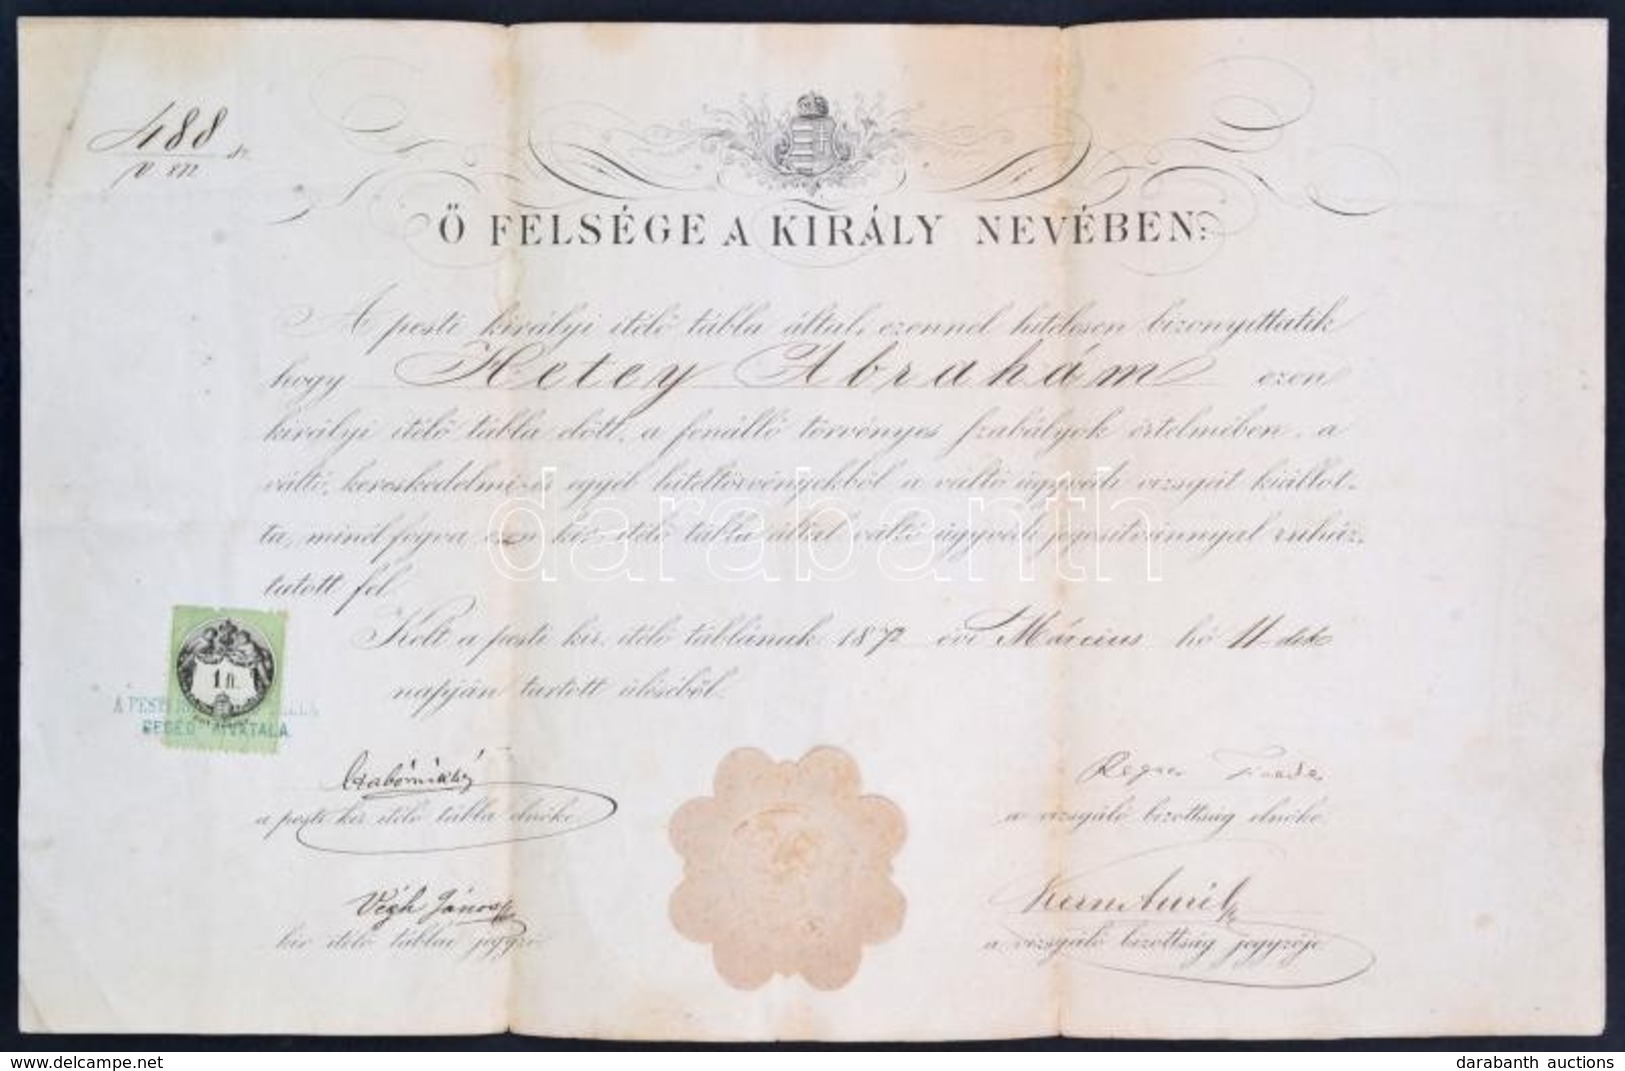 488
Ő FELSÉGE A KIRÁLY NEVÉBEN:
A pesti királyi itélő tábla által, ezennel hitelesen bizonyittatik
hogy Hetey Abrahám ezen
királyi itélő tábla előtt, a fenálló törvényes szabályok értelmében, a
váltó, kereskedelmi és egyéb hiteltörvényekből a váltó ügyvédi vizsgát kiállot-
ta, minél fogva ezen kir. itélő tábla által váltó ügyvédi jogositvánnyal ruház-
tatott fel.
Kelt a pesti kir. itélő táblának 1872 évi Március hó 11-
napján tartott üléséből.
1 ft.
A PESTI
SEGÉD HIVATALA
a pesti kir. itélő tábla elnöke
a vizsgáló bizottság elnöke
Végh János
kir itélő táblai jegyző
a vizsgáló bizottság jegyzője
darabanth
www.delcampe.net
darabanth auctions